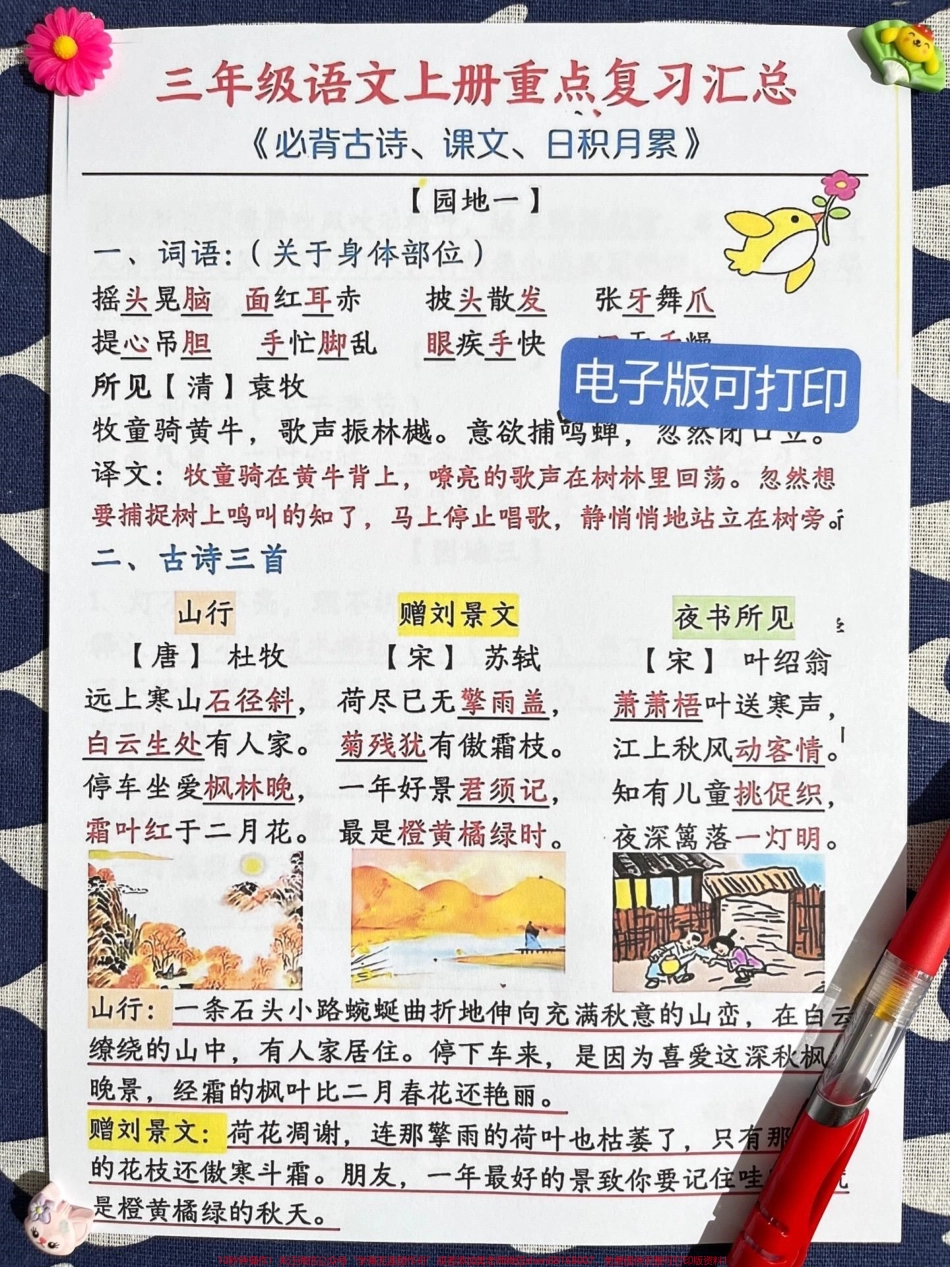 三年级语文上册重点复习汇总
《必背古诗、课文、日积月累》
【园地一】
一、词语:(关于身体部位)
摇头晃脑 面红耳赤 披头散发 张牙舞爪
提心吊胆 手忙脚乱 眼疾手快
电子版可打印
所见【清】袁牧
牧童骑黄牛，歌声振林樾。意欲捕鸣蝉，忽然闭口立。
译文：牧童骑在黄牛背上，嘹亮的歌声在树林里回荡。忽然想
要捕捉树上鸣叫的知了，马上停止唱歌，静悄悄地站立在树旁。
二、古诗三首
山行 赠刘景文 夜书所见
【唐】 杜牧 【宋】 苏轼 【宋】 叶绍翁
远上寒山石径斜， 荷尽已无擎雨盖， 萧萧梧叶送寒声，
白云生处有人家。 菊残犹有傲霜枝。 江上秋风动客情。
停车坐爱枫林晚， 一年好景君须记， 知有儿童挑促织，
霜叶红于二月花。 最是橙黄橘绿时。 夜深篱落一灯明。
山行：一条石头小路蜿蜒曲折地伸向充满秋意的山峦，在白云
缭绕的山中，有人家居住。停下车来，是因为喜爱这深秋枫
晚景，经霜的枫叶比二月春花还艳丽。
赠刘景文：荷花凋谢，连那擎雨的荷叶也枯萎了，只有那
的花枝还傲寒斗霜。朋友，一年最好的景致你要记住哇
是橙黄橘绿的秋天。